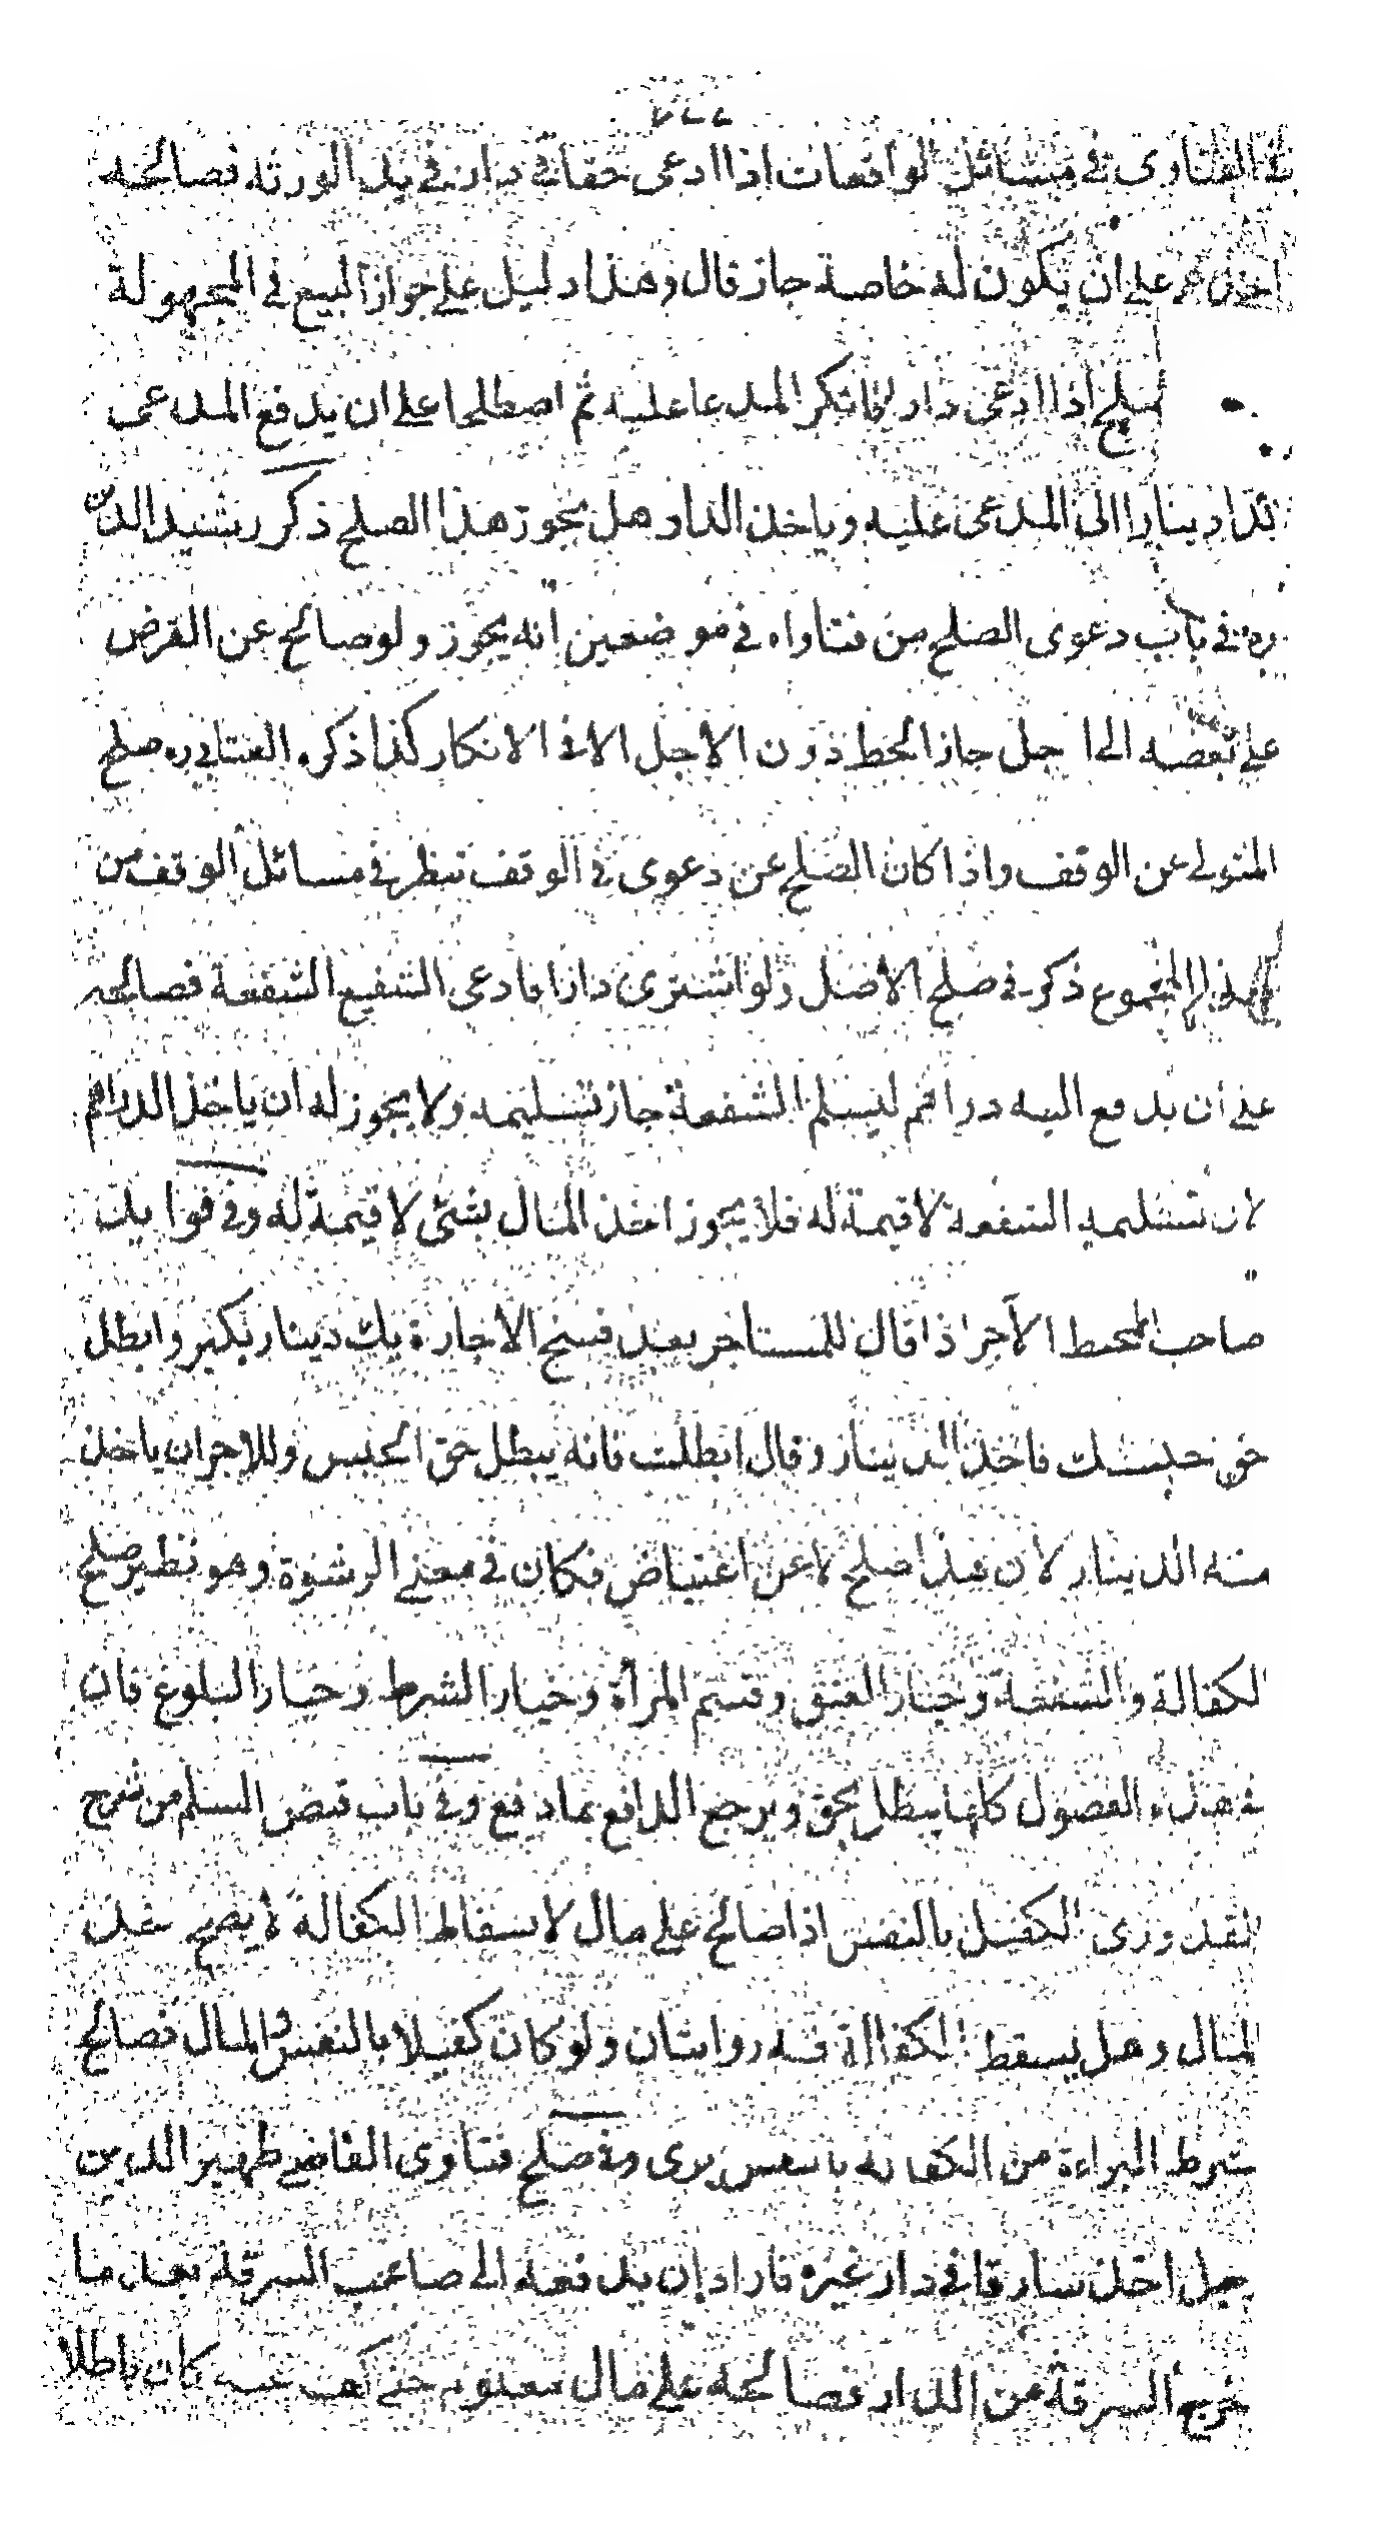 في الفتاوى في مسائل الواقعات اذا ادعى حقا في دار في يد الورثه فصالحه
احدهم على ان يكون له خاصة جاز قال وهذا دليل على جواز البيع في المجهولة
صلح اذا ادعى دارا فانكر المدعا عليه ثم اصطلحا على ان يدفع المدعى
دينارا الى المدعى عليه وياخذ الدار هل يجوز هذا الصلح ذكر رشيد الدين
ره في باب دعوى الصلح من فتاواه في موضعين انه يجوز ولو صالح عن القرض
على بعضه الى اجل جاز الحط دون الاجل الا في الانكار كذا ذكره العتابي ره صلح
المتولي عن الوقف واذا كان الصلح عن دعوى في الوقف تنظر في مسائل الوقف من
المجموع ذكر في صلح الاصل ولو اشترى دارا فادعى الشفيع الشفعة فصالحه
على ان يدفع اليه دراهم ليسلم الشفعة جاز تسليمه ولا يجوز له ان ياخذ الدراهم
لان تسليم الشفعة لا قيمة له فلا يجوز اخذ المال بشئ لا قيمة له وفي فوايد
صاحب المحيط الآجر اذا قال للمستاجر بعد فسخ الاجارة يك دينار بكير وابطل
حق حبسك فاخذ الدينار وقال ابطلت فانه يبطل حق الحبس وللاجر ان ياخذ
منه الدينار لان هذا صلح لا عن اعتياض فكان في معنى الرشوة وهو نظير صلح
الكفالة والشفعة وخيار العتق وقسم المرأة وخيار الشرط وخيار البلوغ فان
في هذه الفصول كلها يبطل الحق ويرجع الدافع بما دفع وفي باب قبض السلم من شرح
القدوري الكفيل بالنفس اذا صالح على مال لاسقاط الكفالة لا يصح
المال وهل يسقط الكفالة فيه روايتان ولو كان كفيلا بالنفس والمال فصالح
بشرط البراءة من الكفالة بالنفس برى وفي صلح فتاوى القاضي ظهير الدين
رجل اخذ سارقا في دار غيره فاراد ان يدفعه الى صاحب السرقة بعد ما
خرج السرقة من الدار فصالحه على مال معلوم حتى كف عنه كان باطلا